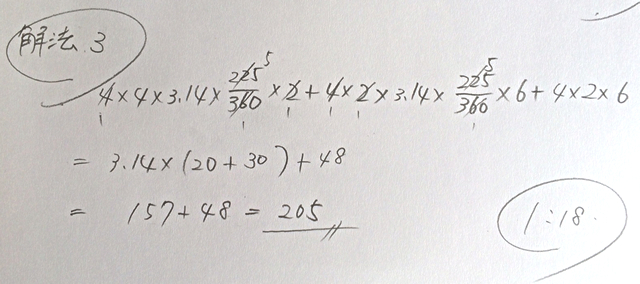 解法.3
4×4×3.14×225/360×2+4×2×3.14×225/360×6+4×2×6
= 3.14×(20+30)+48
= 157+48=205
1:18.